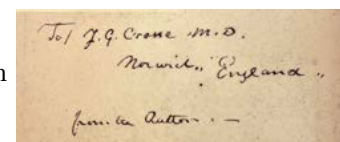 To/ J. G. Crosse M.D.
Norwich,, England ,,
from the Author. —